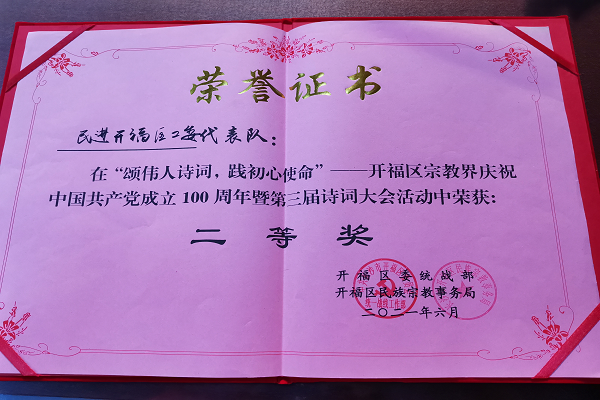 荣誉证书
民进开福区工委代表队：
在“颂伟人诗词，践初心使命”——开福区宗教界庆祝
中国共产党成立 100 周年暨第三届诗词大会活动中荣获：
二等奖
开福区委统战部
开福区民族宗教事务局
二〇二一年六月
统一战线工作部